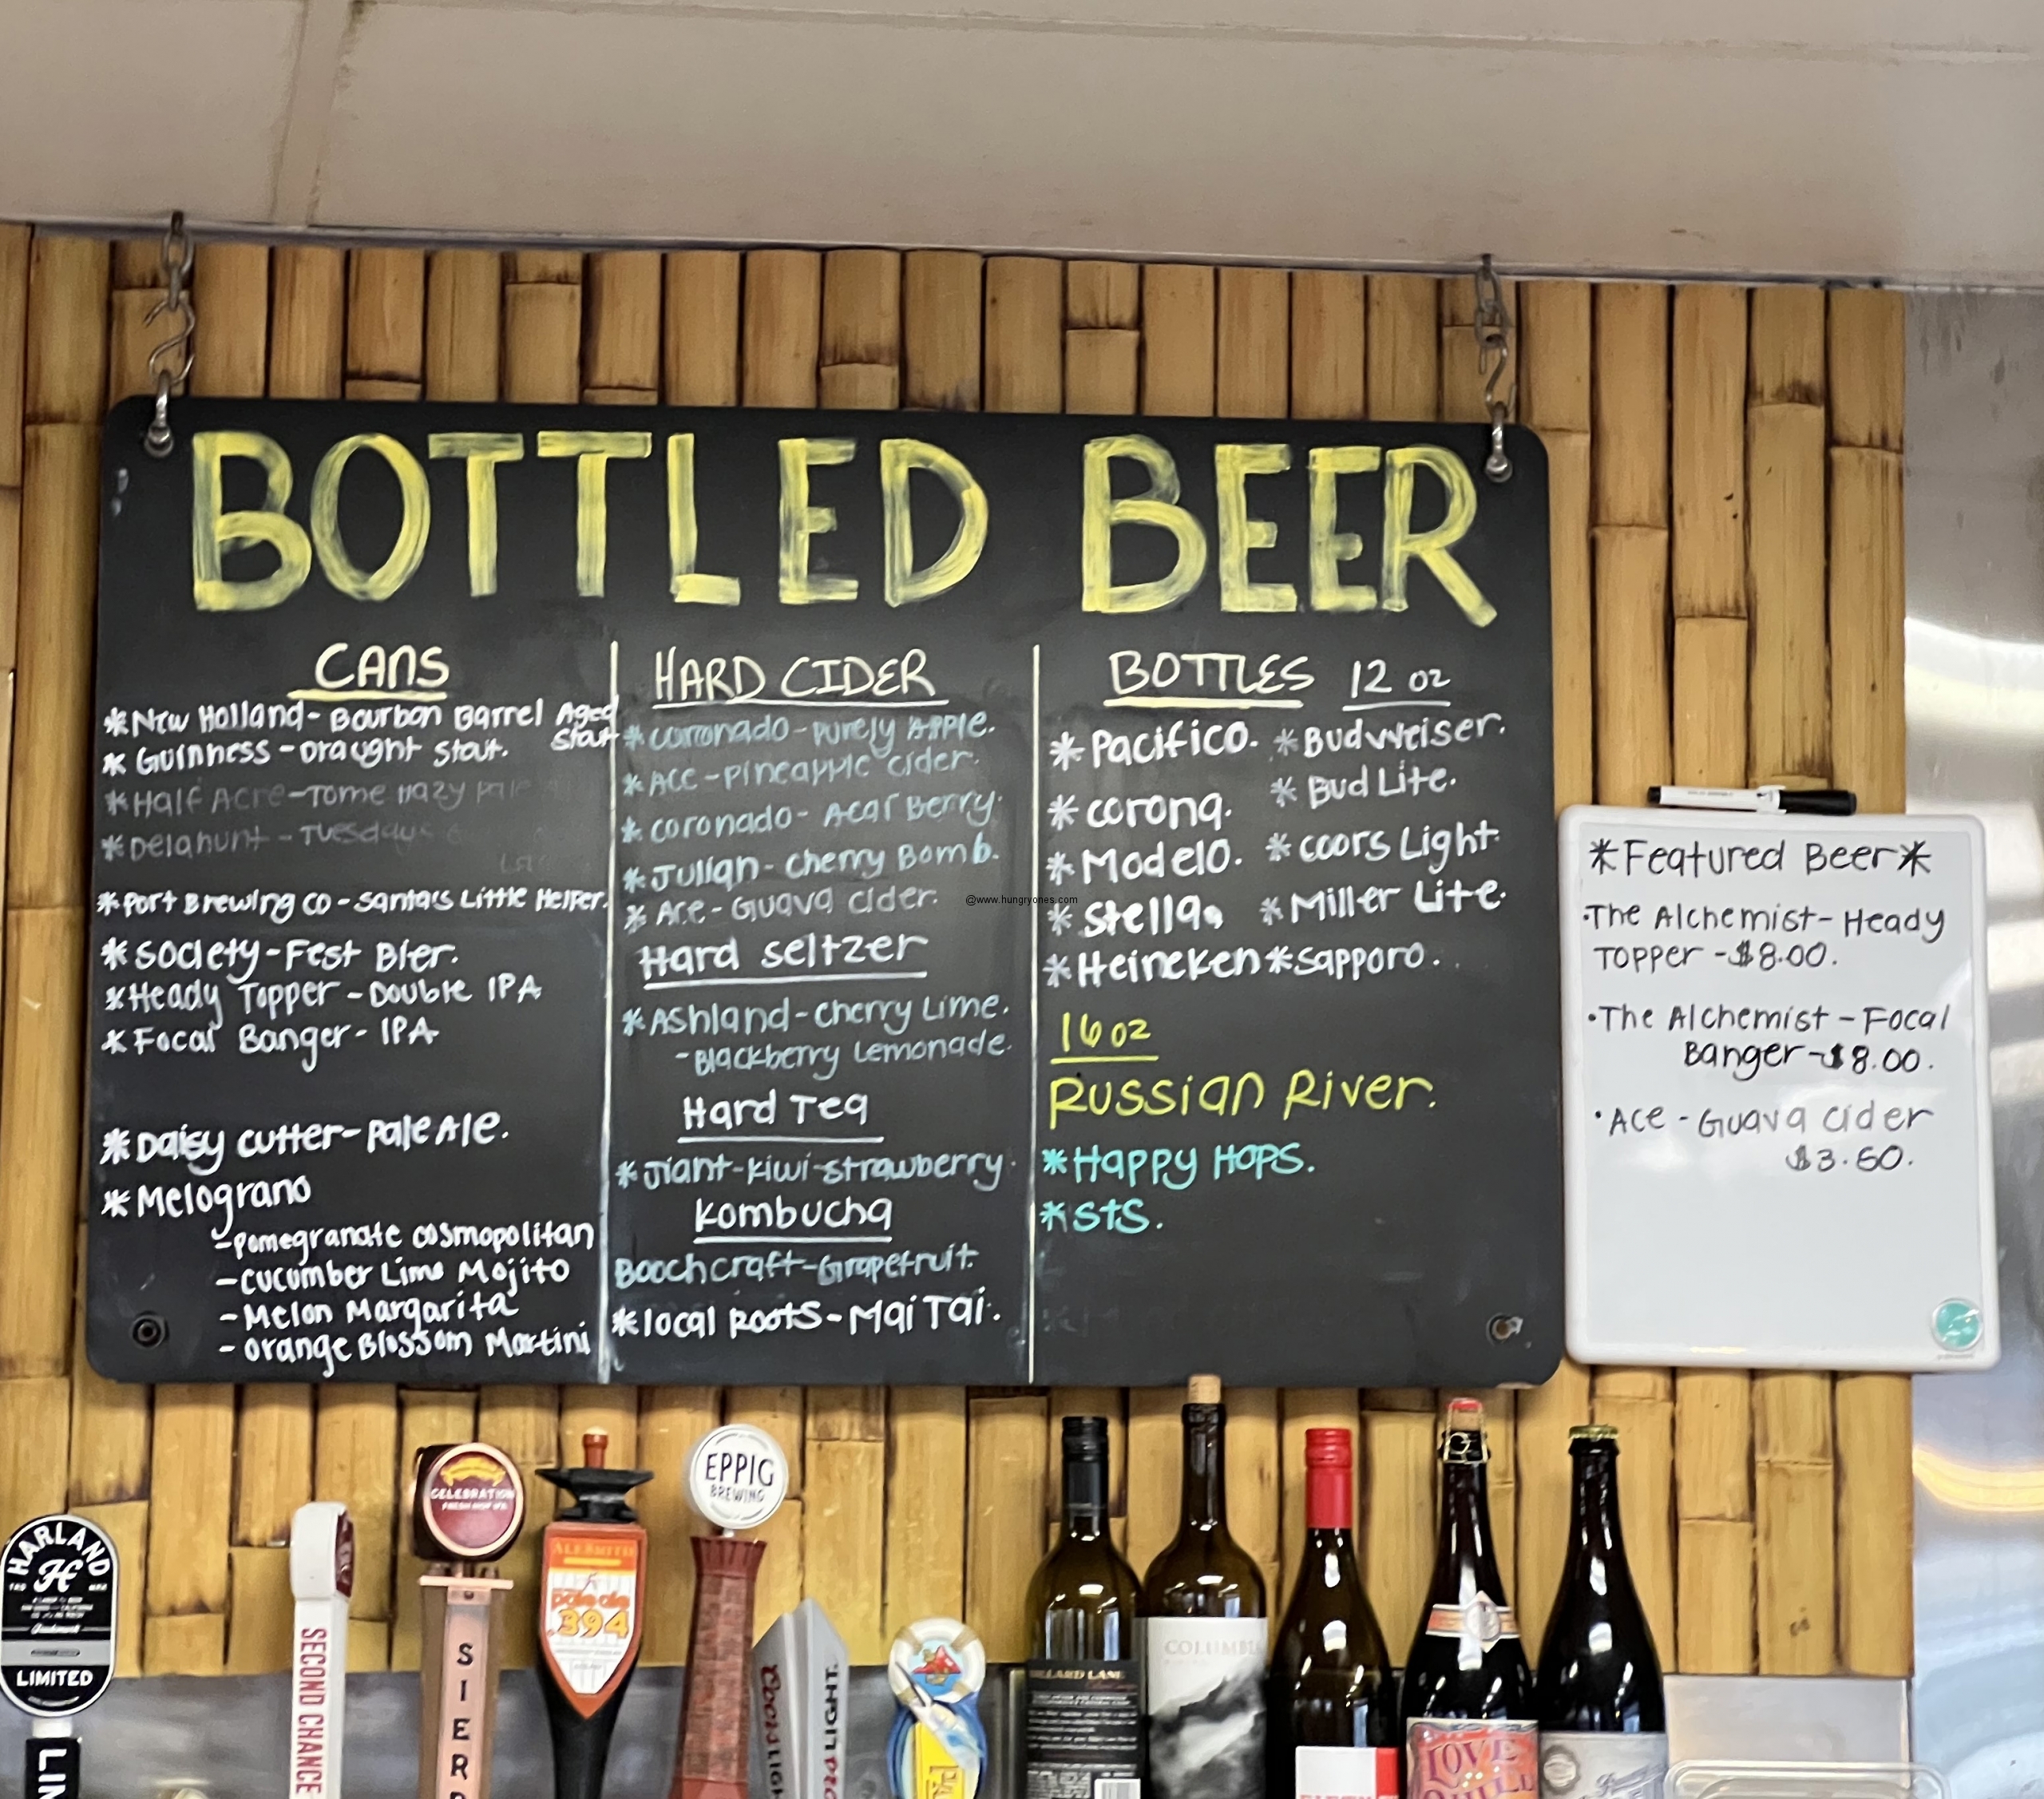 BOTTLED BEER
CANS
*New Holland- Bourbon Barrel Aged
Stout
* Guinness - Draught Stout.
*Half Acre-Tome Hazy Pale
*Delahunt - Tuesdays
*Port Brewing CO - Santa's Little Helper.
*Society-Fest Bier.
*Heady Topper - Double IPA
*Focal Banger- IPA
*Daisy Cutter- Pale Ale.
*Melograno
-Pomegranate Cosmopolitan
-Cucumber Lime Mojito
-Melon Margarita
- Orange Blossom Martini
HARD CIDER
*Corronado - Purely Apple.
*Ace - Pineapple Cider.
*Coronado - Acai Berry.
*Julian- Cherry Bomb.
* Ace- Guava Cider.
Hard Seltzer
*Ashland-Cherry Lime.
-Blackberry Lemonade.
Hard Tea
*Jiant-Kiwi-Strawberry.
Kombucha
Boochcraft-Grapefruit.
*Local Roots-Mai Tai.
BOTTLES 12 oz
*Pacifico. *Budweiser.
*Corona. * Bud Lite.
*Modelo. *Coors Light.
*Stella. *Miller Lite.
*Heineken *Sapporo.
16 oz
Russian River.
*Happy Hops.
*STS.
*Featured Beer*
·The Alchemist- Heady
Topper -$8.00.
·The Alchemist - Focal
Banger-$8.00.
·Ace - Guava Cider
$3.50.
@www.hungryones.com
HARLAND
H
LIMITED
SECOND CHANCE
CELEBRATION
FRESH HOP IPA
SIER
ALESMITH
pale ale
.394
EPPIG
BREWING
Coors LIGHT
LIGHT
COLUMBIA
LOVE